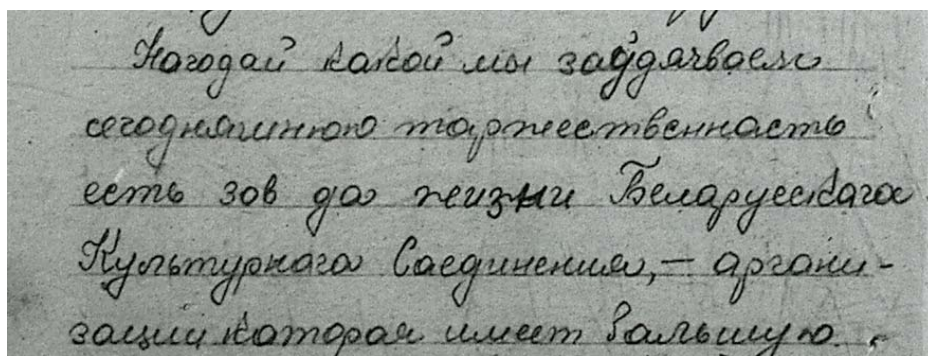 Нагодай какой мы заўдячваем
сегодняшнюю таржественнасть
есть зов да жизни Беларусскага
Культурнага Саединения, — аргани-
зации каторая имеет бальшую